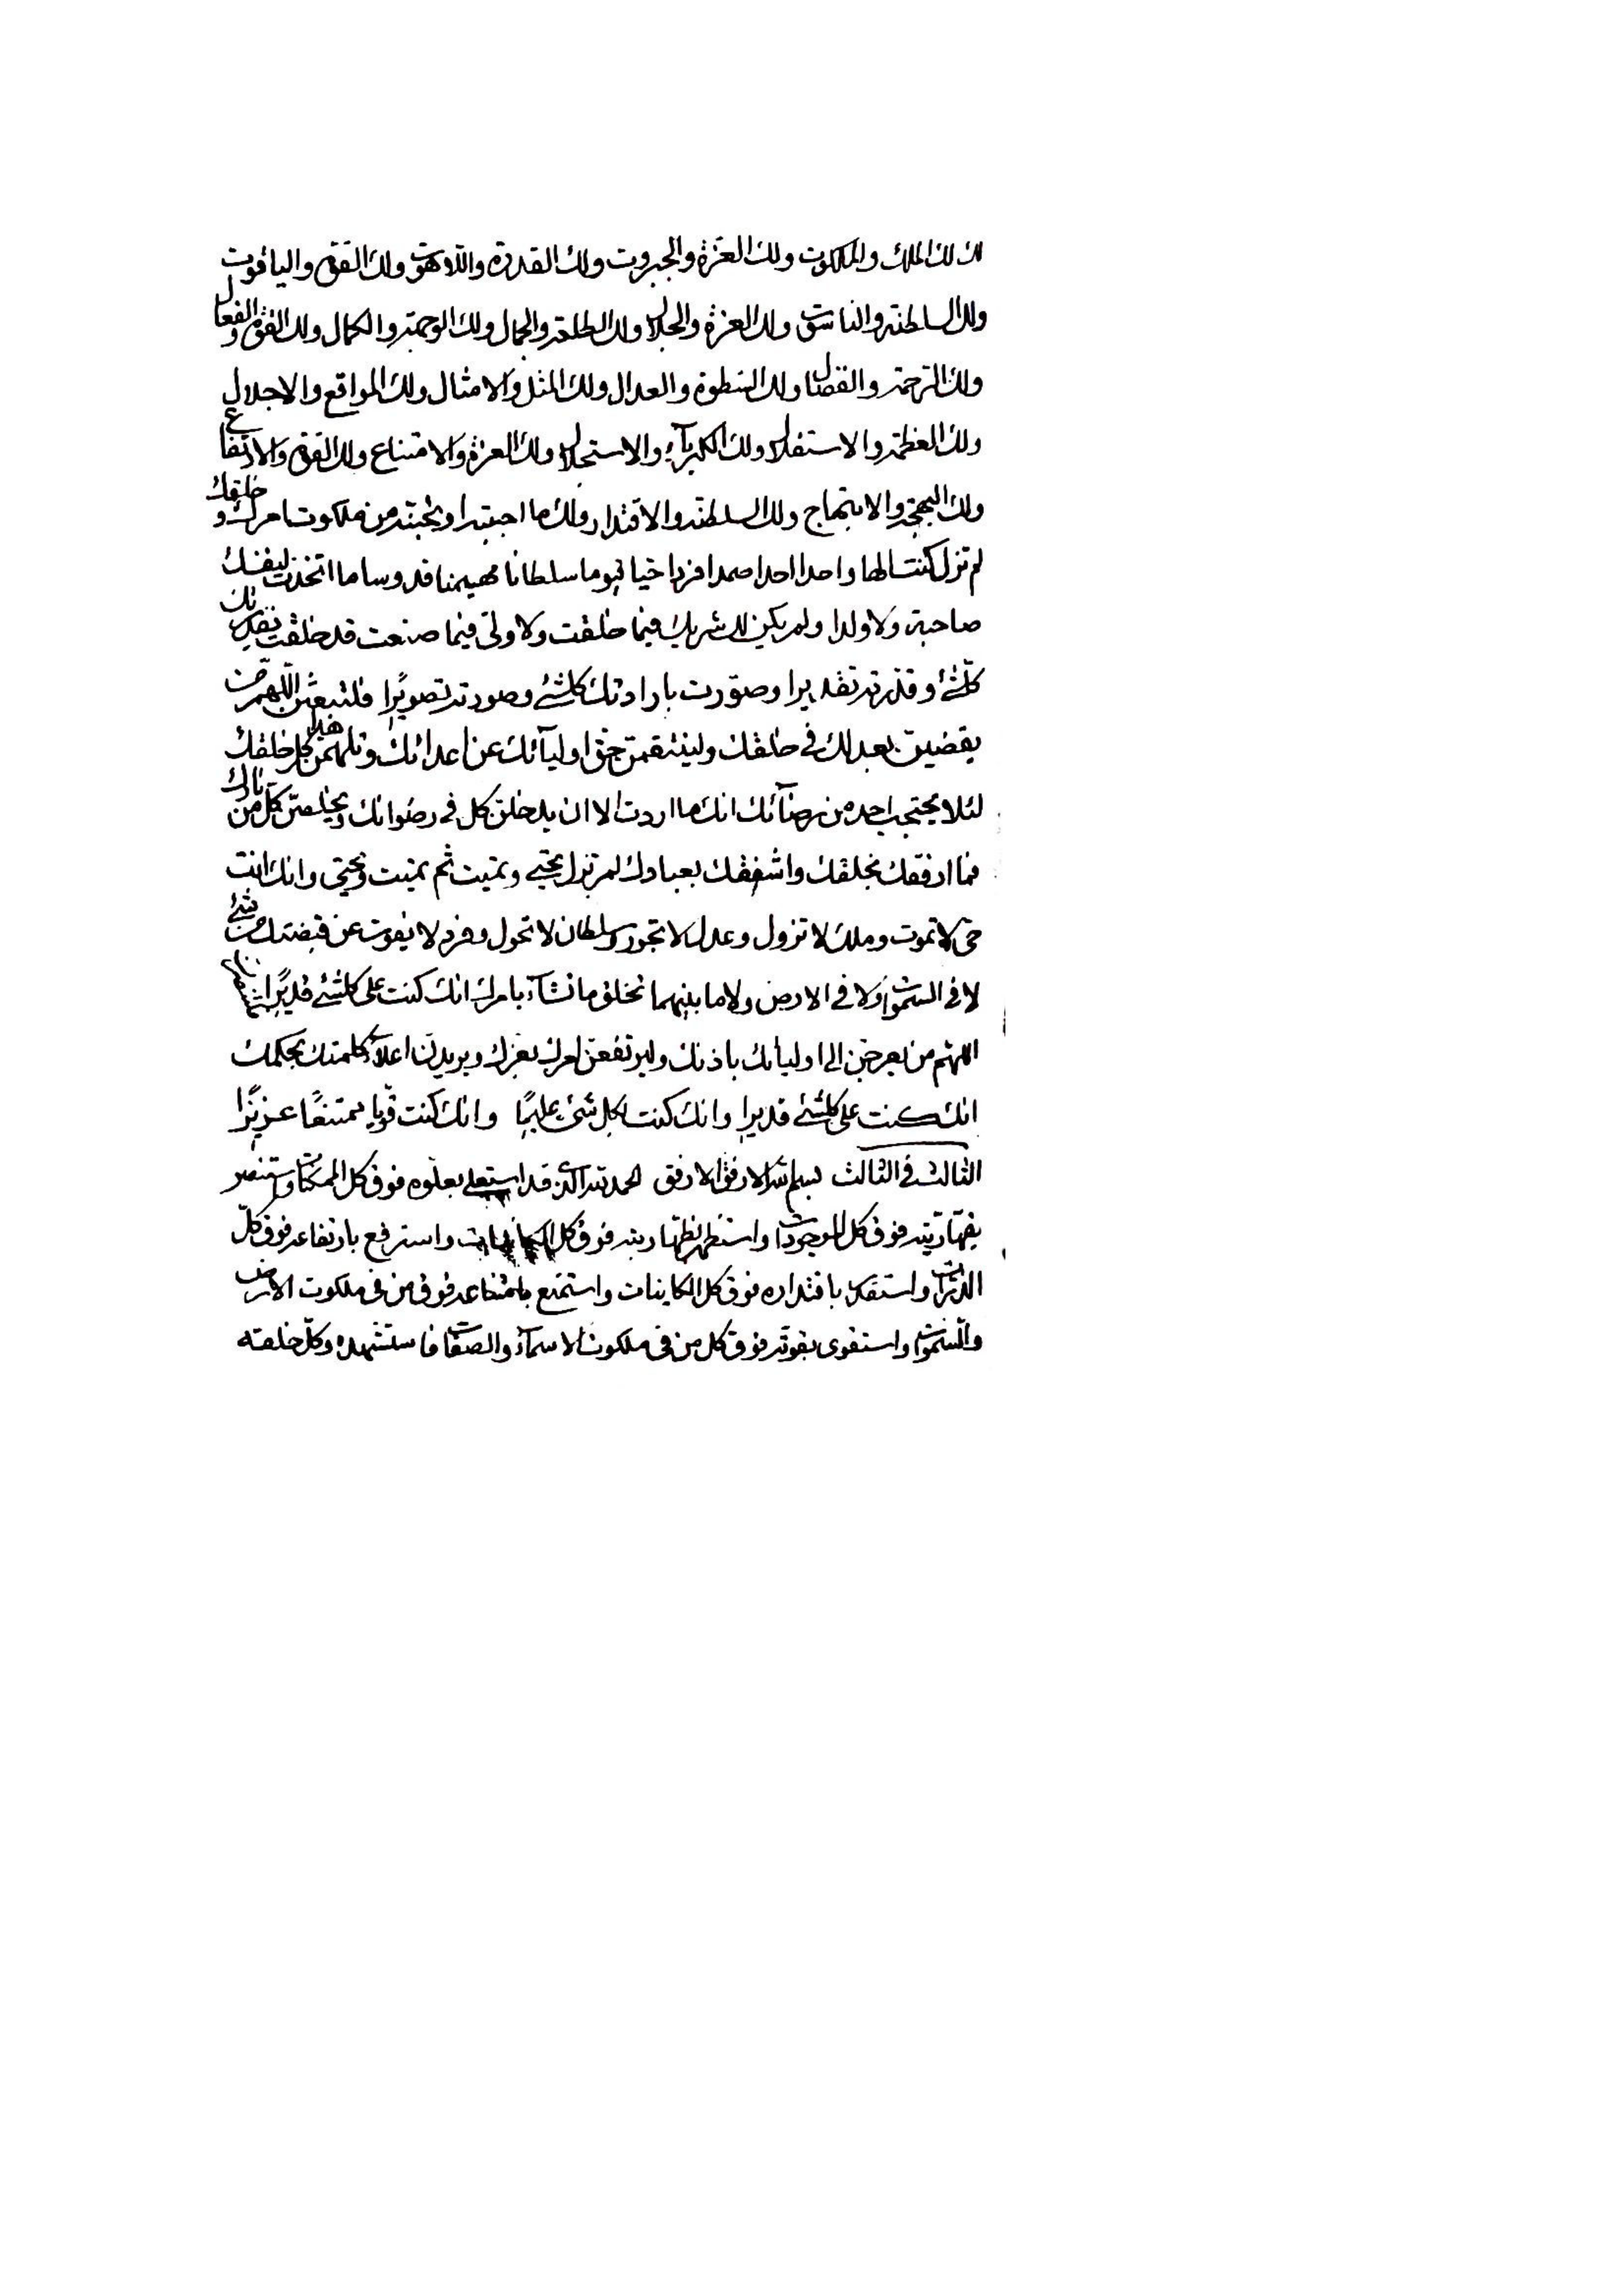 لك لك الملك والملكوت ولك العزة والجبروت ولك القدرة واللاهوت ولك القوة والياقوت
ولك السلطنة والناسوت ولك العزة والجلال ولك الطلعة والجمال ولك الوجهة والكمال ولك القوة والفعال
ولك الرحمة والفضال ولك السطوة والعدال ولك المثل والامثال ولك المواقع والاجلال
ولك العظمة والاستقلال ولك الكبرياء والاستجلال ولك العزة والامتناع ولك القوة والارتفاع
ولك البهجة والابتهاج ولك السلطنة والاقتدار ولك ما احببته او تحببته من ملكوت امرك وخلقك
لم تزل كنت الها واحدا احدا صمدا فردا حيا قيوما سلطانا مهيمنا قدوسا ما اتخذت لنفسك
صاحبة ولا ولدا ولم يكن لك شريك فيما خلقت ولا ولي فيما صنعت قد خلقت بقدرتك
كلشئ وقدرته تقديرا وصورت بارادتك كلشئ وصورته تصويرًا فلتبعثن اللهم من
يقضين بعدلك في خلقك ولينتقمن حق اوليآئك عن اعدائك وتلهمن كل خلقك هذا
لئلا يحتجب احد من رضآئك انك ما اردت الا ان يدخلن كل في رضوانك ويخلصن كل من نارك
فما ارفقك بخلقك واشفقك بعبادك لم تزل تحيي وتميت ثم تميت وتحيي وانك انت
حي لا تموت وملك لا تزول وعدل لا تجور وسلطان لا تحول وفرد لا يفوت عن قبضتك من شئ
لا في السموات ولا في الارض ولا ما بينهما تخلق ما تشآء بامرك انك كنت على كلشئ قديرًا
اللهم من يعرجن الى اوليائك باذنك وليرتفعن بعزك ويريدن اعلآء كلمتك بحكمك
انك كنت على كلشئ قديرا وانك كنت بكل شئ عليمًا وانك كنت قويا ممتنعًا عزيزًا
الثالث في الثالث بسم الله الارفق الارفق الحمد لله الذي قد استعلى بعلوه فوق كل الممكنات واستنصر
بقهاريته فوق كل الموجودات واستظهر بظهاريته فوق كل واسترفع بارتفاعه فوق كل
الذرات واستقدر باقتداره فوق كل الكاينات واستمنع بامتناعه فوق من في ملكوت الارض
والسموات واستقوى بقوته فوق كل من في ملكوت الاسمآء والصفات فاستشهده وكل خلقه